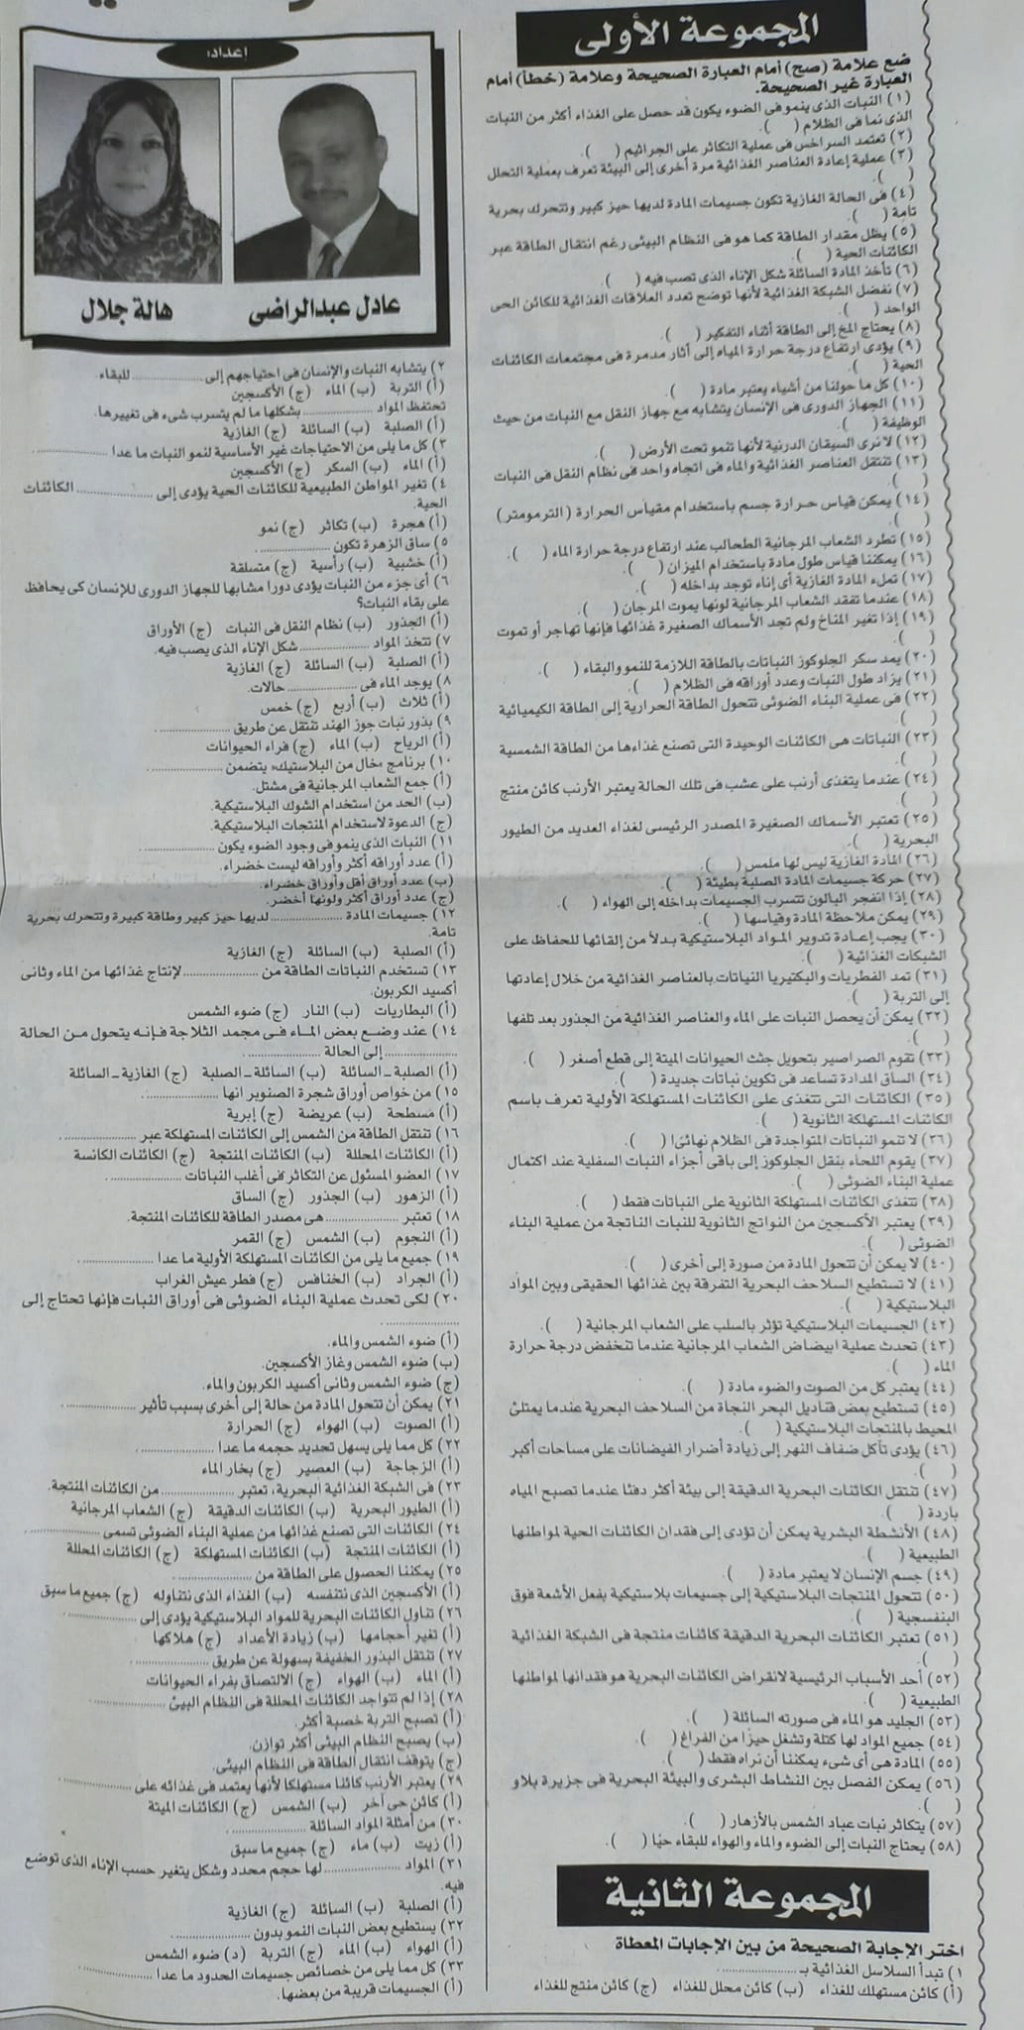 المجموعة الأولى
ضع علامة (صح) أمام العبارة الصحيحة وعلامة (خطأ) أمام
العبارة غير الصحيحة.
(١) النبات الذى ينمو فى الضوء يكون قد حصل على الغذاء أكثر من النبات
الذى نما فى الظلام ( ).
(٢) تعتمد السراخس فى عملية التكاثر على الجراثيم ( ).
(٣) عملية إعادة العناصر الغذائية مرة أخرى إلى البيئة تعرف بعملية التحلل
( ).
(٤) فى الحالة الغازية تكون جسيمات المادة لديها حيز كبير وتتحرك بحرية
تامة ( ).
(٥) يظل مقدار الطاقة كما هو فى النظام البيئى رغم انتقال الطاقة عبر
الكائنات الحية ( ).
(٦) تأخذ المادة السائلة شكل الإناء الذى تصب فيه ( ).
(٧) نفضل الشبكة الغذائية لأنها توضح تعدد العلاقات الغذائية للكائن الحى
الواحد ( ).
(٨) يحتاج المخ إلى الطاقة أثناء التفكير ( ).
(٩) يؤدى ارتفاع درجة حرارة المياه إلى آثار مدمرة فى مجتمعات الكائنات
الحية ( ).
(١٠) كل ما حولنا من أشياء يعتبر مادة ( ).
(١١) الجهاز الدورى فى الإنسان يتشابه مع جهاز النقل مع النبات من حيث
الوظيفة ( ).
(١٢) لا نرى السيقان الدرنية لأنها تنمو تحت الأرض ( ).
(١٣) تنتقل العناصر الغذائية والماء فى اتجاه واحد فى نظام النقل فى النبات
( ).
(١٤) يمكن قياس حرارة جسم باستخدام مقياس الحرارة (الترمومتر)
( ).
(١٥) تطرد الشعاب المرجانية الطحالب عند ارتفاع درجة حرارة الماء ( ).
(١٦) يمكننا قياس طول مادة باستخدام الميزان ( ).
(١٧) تملء المادة الغازية أى إناء توجد بداخله ( ).
(١٨) عندما تفقد الشعاب المرجانية لونها يموت المرجان ( ).
(١٩) إذا تغير المناخ ولم تجد الأسماك الصغيرة غذائها فإنها تهاجر أو تموت
( ).
(٢٠) يمد سكر الجلوكوز النباتات بالطاقة اللازمة للنمو والبقاء ( ).
(٢١) يزاد طول النبات وعدد أوراقه فى الظلام ( ).
(٢٢) فى عملية البناء الضوئى تتحول الطاقة الحرارية إلى الطاقة الكيميائية
( ).
(٢٣) النباتات هى الكائنات الوحيدة التى تصنع غذاءها من الطاقة الشمسية
( ).
(٢٤) عندما يتغذى أرنب على عشب فى تلك الحالة يعتبر الأرنب كائن منتج
( ).
(٢٥) تعتبر الأسماك الصغيرة المصدر الرئيسى لغذاء العديد من الطيور
البحرية ( ).
(٢٦) المادة الغازية ليس لها ملمس ( ).
(٢٧) حركة جسيمات المادة الصلبة بطيئة ( ).
(٢٨) إذا انفجر البالون تتسرب الجسيمات بداخله إلى الهواء ( ).
(٢٩) يمكن ملاحظة المادة وقياسها ( ).
(٣٠) يجب إعادة تدوير المواد البلاستيكية بدلاً من إلقائها للحفاظ على
الشبكات الغذائية ( ).
(٣١) تمد الفطريات والبكتيريا النباتات بالعناصر الغذائية من خلال إعادتها
إلى التربة ( ).
(٣٢) يمكن أن يحصل النبات على الماء والعناصر الغذائية من الجذور بعد تلفها
( ).
(٣٣) تقوم الصراصير بتحويل جثث الحيوانات الميتة إلى قطع أصغر ( ).
(٣٤) الساق المدادة تساعد فى تكوين نباتات جديدة ( ).
(٣٥) الكائنات التى تتغذى على الكائنات المستهلكة الأولية تعرف باسم
الكائنات المستهلكة الثانوية ( ).
(٣٦) لا تنمو النباتات المتواجدة فى الظلام نهائيًا ( ).
(٣٧) يقوم اللحاء بنقل الجلوكوز إلى باقى أجزاء النبات السفلية عند اكتمال
عملية البناء الضوئى ( ).
(٣٨) تتغذى الكائنات المستهلكة الثانوية على النباتات فقط ( ).
(٣٩) يعتبر الأكسجين من النواتج الثانوية للنبات الناتجة من عملية البناء
الضوئى ( ).
(٤٠) لا يمكن أن تتحول المادة من صورة إلى أخرى ( ).
(٤١) لا تستطيع السلاحف البحرية التفرقة بين غذائها الحقيقى وبين المواد
البلاستيكية ( ).
(٤٢) الجسيمات البلاستيكية تؤثر بالسلب على الشعاب المرجانية ( ).
(٤٣) تحدث عملية ابيضاض الشعاب المرجانية عندما تنخفض درجة حرارة
الماء ( ).
(٤٤) يعتبر كل من الصوت والضوء مادة ( ).
(٤٥) تستطيع بعض قناديل البحر النجاة من السلاحف البحرية عندما يمتلئ
المحيط بالمنتجات البلاستيكية ( ).
(٤٦) يؤدى تآكل ضفاف النهر إلى زيادة أضرار الفيضانات على مساحات أكبر
( ).
(٤٧) تنتقل الكائنات البحرية الدقيقة إلى بيئة أكثر دفئا عندما تصبح المياه
باردة ( ).
(٤٨) الأنشطة البشرية يمكن أن تؤدى إلى فقدان الكائنات الحية لمواطنها
الطبيعية ( ).
(٤٩) جسم الإنسان لا يعتبر مادة ( ).
(٥٠) تتحول المنتجات البلاستيكية إلى جسيمات بلاستيكية بفعل الأشعة فوق
البنفسجية ( ).
(٥١) تعتبر الكائنات البحرية الدقيقة كائنات منتجة فى الشبكة الغذائية
( ).
(٥٢) أحد الأسباب الرئيسية لانقراض الكائنات البحرية هو فقدانها لمواطنها
الطبيعية ( ).
(٥٣) الجليد هو الماء فى صورته السائلة ( ).
(٥٤) جميع المواد لها كتلة وتشغل حيزًا من الفراغ ( ).
(٥٥) المادة هى أى شىء يمكننا أن نراه فقط ( ).
(٥٦) يمكن الفصل بين النشاط البشرى والبيئة البحرية فى جزيرة بلاو
( ).
(٥٧) يتكاثر نبات عباد الشمس بالأزهار ( ).
(٥٨) يحتاج النبات إلى الضوء والماء والهواء للبقاء حيًا ( ).
المجموعة الثانية
اختر الإجابة الصحيحة من بين الإجابات المعطاة
١) تبدأ السلاسل الغذائية بـ ..............
(أ) كائن مستهلك للغذاء (ب) كائن محلل للغذاء (ج) كائن منتج للغذاء
إعداد:
عادل عبدالراضى
هالة جلال
٢) يتشابه النبات والإنسان فى احتياجهم إلى .............. للبقاء
(أ) التربة (ب) الماء (ج) الأكسجين
تحتفظ المواد .............. بشكلها ما لم يتسرب شىء فى تغييرها.
(أ) الصلبة (ب) السائلة (ج) الغازية
٣) كل ما يلى من الاحتياجات غير الأساسية لنمو النبات ما عدا ..............
(أ) الماء (ب) السكر (ج) الأكسجين
٤) تغير المواطن الطبيعية للكائنات الحية يؤدى إلى .............. الكائنات
الحية.
(أ) هجرة (ب) تكاثر (ج) نمو
٥) ساق الزهرة تكون ..............
(أ) خشبية (ب) رأسية (ج) متسلقة
٦) أى جزء من النبات يؤدى دورا مشابها للجهاز الدورى للإنسان كى يحافظ
على بقاء النبات؟
(أ) الجذور (ب) نظام النقل فى النبات (ج) الأوراق
٧) تتخذ المواد .............. شكل الإناء الذى يصب فيه.
(أ) الصلبة (ب) السائلة (ج) الغازية
٨) يوجد الماء فى .............. حالات.
(أ) ثلاث (ب) أربع (ج) خمس
٩) بذور نبات جوز الهند تنتقل عن طريق ..............
(أ) الرياح (ب) الماء (ج) فراء الحيوانات
١٠) برنامج «خال من البلاستيك» يتضمن ..............
(أ) جمع الشعاب المرجانية فى مشتل.
(ب) الحد من استخدام الشوك البلاستيكية.
(ج) الدعوة لاستخدام المنتجات البلاستيكية.
١١) النبات الذى ينمو فى وجود الضوء يكون ..............
(أ) عدد أوراقه أكثر وأوراقه ليست خضراء.
(ب) عدد أوراق أقل وأوراق خضراء.
(ج) عدد أوراق أكثر ولونها أخضر.
١٢) جسيمات المادة .............. لديها حيز كبير وطاقة كبيرة وتتحرك بحرية
تامة.
(أ) الصلبة (ب) السائلة (ج) الغازية
١٣) تستخدم النباتات الطاقة من .............. لإنتاج غذائها من الماء وثانى
أكسيد الكربون.
(أ) البطاريات (ب) النار (ج) ضوء الشمس
١٤) عند وضع بعض الماء فى مجمد الثلاجة فإنه يتحول من الحالة
.............. إلى الحالة ..............
(أ) الصلبة-السائلة (ب) السائلة-الصلبة (ج) الغازية-السائلة
١٥) من خواص أوراق شجرة الصنوبر انها ..............
(أ) مسطحة (ب) عريضة (ج) إبرية
١٦) تنتقل الطاقة من الشمس إلى الكائنات المستهلكة عبر ..............
(أ) الكائنات المحللة (ب) الكائنات المنتجة (ج) الكائنات الكانسة
١٧) العضو المسئول عن التكاثر فى أغلب النباتات ..............
(أ) الزهور (ب) الجذور (ج) الساق
١٨) تعتبر .............. هى مصدر الطاقة للكائنات المنتجة.
(أ) النجوم (ب) الشمس (ج) القمر
١٩) جميع ما يلى من الكائنات المستهلكة الأولية ما عدا ..............
(أ) الجراد (ب) الخنافس (ج) فطر عيش الغراب
٢٠) لكى تحدث عملية البناء الضوئى فى أوراق النبات فإنها تحتاج إلى
..............
(أ) ضوء الشمس والماء.
(ب) ضوء الشمس وغاز الأكسجين.
(ج) ضوء الشمس وثانى أكسيد الكربون والماء.
٢١) يمكن أن تتحول المادة من حالة إلى أخرى بسبب تأثير ..............
(أ) الصوت (ب) الهواء (ج) الحرارة
٢٢) كل مما يلى يسهل تحديد حجمه ما عدا ..............
(أ) الزجاجة (ب) العصير (ج) بخار الماء
٢٣) فى الشبكة الغذائية البحرية، تعتبر .............. من الكائنات المنتجة.
(أ) الطيور البحرية (ب) الكائنات الدقيقة (ج) الشعاب المرجانية
٢٤) الكائنات التى تصنع غذائها من عملية البناء الضوئى تسمى ..............
(أ) الكائنات المنتجة (ب) الكائنات المستهلكة (ج) الكائنات المحللة
٢٥) يمكننا الحصول على الطاقة من ..............
(أ) الأكسجين الذى نتنفسه (ب) الغذاء الذى نتناوله (ج) جميع ما سبق
٢٦) تناول الكائنات البحرية للمواد البلاستيكية يؤدى إلى ..............
(أ) تغير أحجامها (ب) زيادة الأعداد (ج) هلاكها
٢٧) تنتقل البذور الخفيفة بسهولة عن طريق ..............
(أ) الماء (ب) الهواء (ج) الالتصاق بفراء الحيوانات
٢٨) إذا لم تتواجد الكائنات المحللة فى النظام البيئ ..............
(أ) تصبح التربة خصبة أكثر.
(ب) يصبح النظام البيئى أكثر توازن.
(ج) يتوقف انتقال الطاقة فى النظام البيئى.
٢٩) يعتبر الأرنب كائنا مستهلكا لأنها يعتمد فى غذائه على ..............
(أ) كائن حى آخر (ب) الشمس (ج) الكائنات الميتة
٣٠) من أمثلة المواد السائلة ..............
(أ) زيت (ب) ماء (ج) جميع ما سبق
٣١) المواد .............. لها حجم محدد وشكل يتغير حسب الإناء الذى توضع
فيه.
(أ) الصلبة (ب) السائلة (ج) الغازية
٣٢) يستطيع بعض النبات النمو بدون ..............
(أ) الهواء (ب) الماء (ج) التربة (د) ضوء الشمس
٣٣) كل مما يلى من خصائص جسيمات الحدود ما عدا ..............
(أ) الجسيمات قريبة من بعضها.